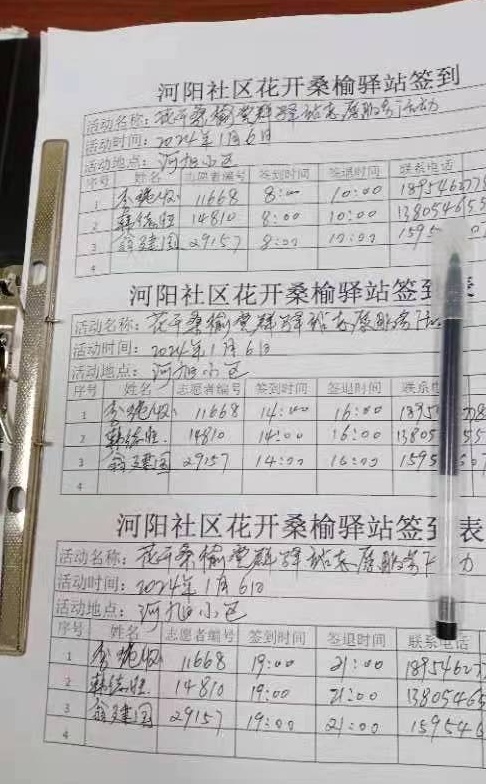 河阳社区花开桑榆驿站签到
活动名称：花开桑榆党群驿站志愿服务活动
活动时间：2024年1月6日
活动地点：河旭小区
序号 姓名 志愿者编号 签到时间 签退时间 联系电话
1 11668 8:00 10:00
2 14810 8:00 10:00
3 翁建国 29157 8:00 10:00 1595
4
河阳社区花开桑榆驿站签到表
活动名称：花开桑榆党群驿站志愿服务活动
活动时间：2024年1月6日
活动地点：河旭小区
序号 姓名 志愿者编号 签到时间 签退时间 联系电
1 11668 14:00 16:00 1895
2 14810 14:00 16:00 13805 55
3 翁建国 29157 14:00 16:00 1595
4
河阳社区花开桑榆驿站签到表
活动名称：花开桑榆党群驿站志愿服务
活动时间：2024年1月6日
活动地点：河旭小区
序号 姓名 志愿者编号 签到时间 签退时间 联系电话
1 11668 19:00 21:00 18954627
2 14810 19:00 21:00 13805465
3 翁建国 29157 19:00 21:00 159546
4